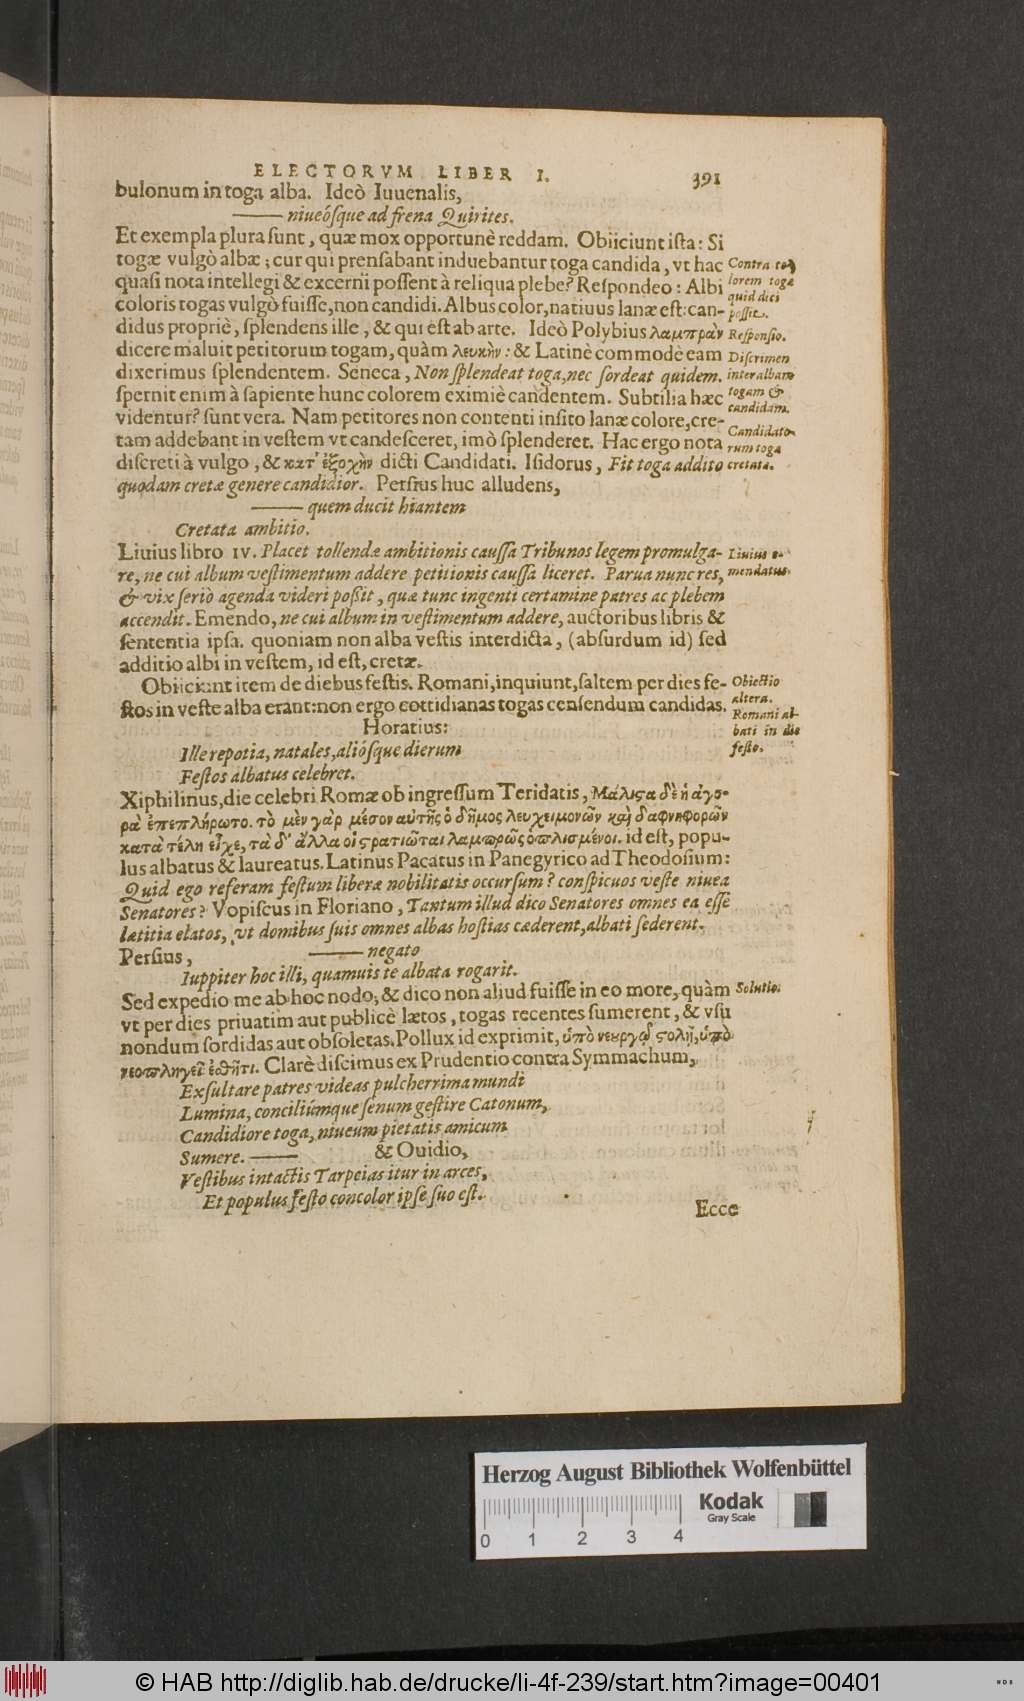 ELECTORVM LIBER I. 391
bulonum in toga alba. Ideò Iuuenalis,
—— niueósque ad frena Quirites.
Et exempla plura sunt, quæ mox opportunè reddam. Obiiciunt ista: Si
togæ vulgò albæ; cur qui prensabant induebantur toga candida, vt hac
quasi nota intellegi & excerni possent à reliqua plebe? Respondeo: Albi
coloris togas vulgò fuisse, non candidi. Albus color, natiuus lanæ est: can-
didus propriè, splendens ille, & qui est ab arte. Ideò Polybius λαμπρὰν
dicere maluit petitorum togam, quàm λευκὴν: & Latinè commodè eam
dixerimus splendentem. Seneca, Non splendeat toga, nec sordeat quidem.
spernit enim à sapiente hunc colorem eximiè candentem. Subtilia hæc
videntur? sunt vera. Nam petitores non contenti insito lanæ colore, cre-
tam addebant in vestem vt candesceret, imò splenderet. Hac ergo nota
discreti à vulgo, & κατ' ἐξοχὴν dicti Candidati. Isidorus, Fit toga addito
quodam cretæ genere candidior. Persius huc alludens,
—— quem ducit hiantem
Cretata ambitio.
Liuius libro IV. Placet tollendæ ambitionis caussa Tribunos legem promulga-
re, ne cui album vestimentum addere petitionis caussa liceret. Parua nunc res,
& vix seriò agenda videri possit, quæ tunc ingenti certamine patres ac plebem
accendit. Emendo, ne cui album in vestimentum addere, auctoribus libris &
sententia ipsa. quoniam non alba vestis interdicta, (absurdum id) sed
additio albi in vestem, id est, cretæ.
Obiiciunt item de diebus festis. Romani, inquiunt, saltem per dies fe-
stos in veste alba erant: non ergo cottidianas togas censendum candidas.
Horatius:
Ille repotia, natales, aliósque dierum
Festos albatus celebret.
Xiphilinus, die celebri Romæ ob ingressum Teridatis, Μάλιςα δὲ ἡ ἀγο-
ρὰ ἐπεπλήρωτο. τὸ μὲν γὰρ μέσον αὐτῆς ὁ δῆμος λευχειμονῶν καὶ δαφνηφορῶν
κατὰ τέλη εἶχε, τὰ δ' ἄλλα οἱ ςρατιῶται λαμπρῶς ὁπλισμένοι. id est, popu-
lus albatus & laureatus. Latinus Pacatus in Panegyrico ad Theodosium:
Quid ego referam festum liberæ nobilitatis occursum? conspicuos veste niuea
Senatores? Vopiscus in Floriano, Tantum illud dico Senatores omnes ea esse
lætitia elatos, vt domibus suis omnes albas hostias cæderent, albati sederent.
Persius, —— negato
Iuppiter hoc illi, quamuis te albata rogarit.
Sed expedio me ab hoc nodo; & dico non aliud fuisse in eo more, quàm
vt per dies priuatim aut publicè lætos, togas recentes sumerent, & vsu
nondum sordidas aut obsoletas. Pollux id exprimit, ὑπὸ νεουργῷ ςολῇ, ὑπὸ
νεοπληγεῖ ἐσθῆτι. Clarè discimus ex Prudentio contra Symmachum,
Exsultare patres videas pulcherrima mundi
Lumina, conciliúmque senum gestire Catonum,
Candidiore toga, niueum pietatis amicum
Sumere. —— & Ouidio,
Vestibus intactis Tarpeias itur in arces,
Et populus festo concolor ipse suo est.
Ecce
Contra
lorem togæ
quid dici
possit.
Responsio.
Discrimen
inter albam
togam &
candidam.
Candidato-
rum toga
cretata.
Liuius e-
mendatus.
Obiectio
altera.
Romani al-
bati in die
festo.
Solutio.
Herzog August Bibliothek Wolfenbüttel
Kodak
Gray Scale
0 1 2 3 4
© HAB http://diglib.hab.de/drucke/li-4f-239/start.htm?image=00401